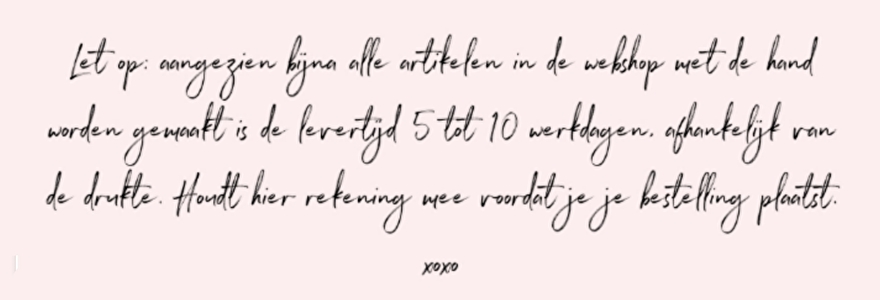 Let op: aangezien bijna alle artikelen in de webshop met de hand
worden gemaakt is de levertijd 5 tot 10 werkdagen. afhankelijk van
de drukte. Houdt hier rekening mee voordat je je bestelling plaatst.
xoxo